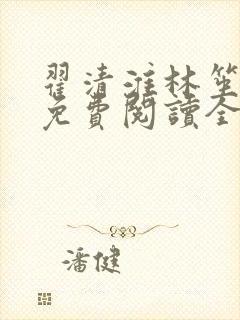 翟清淮林笙
免費閱讀全
潘健